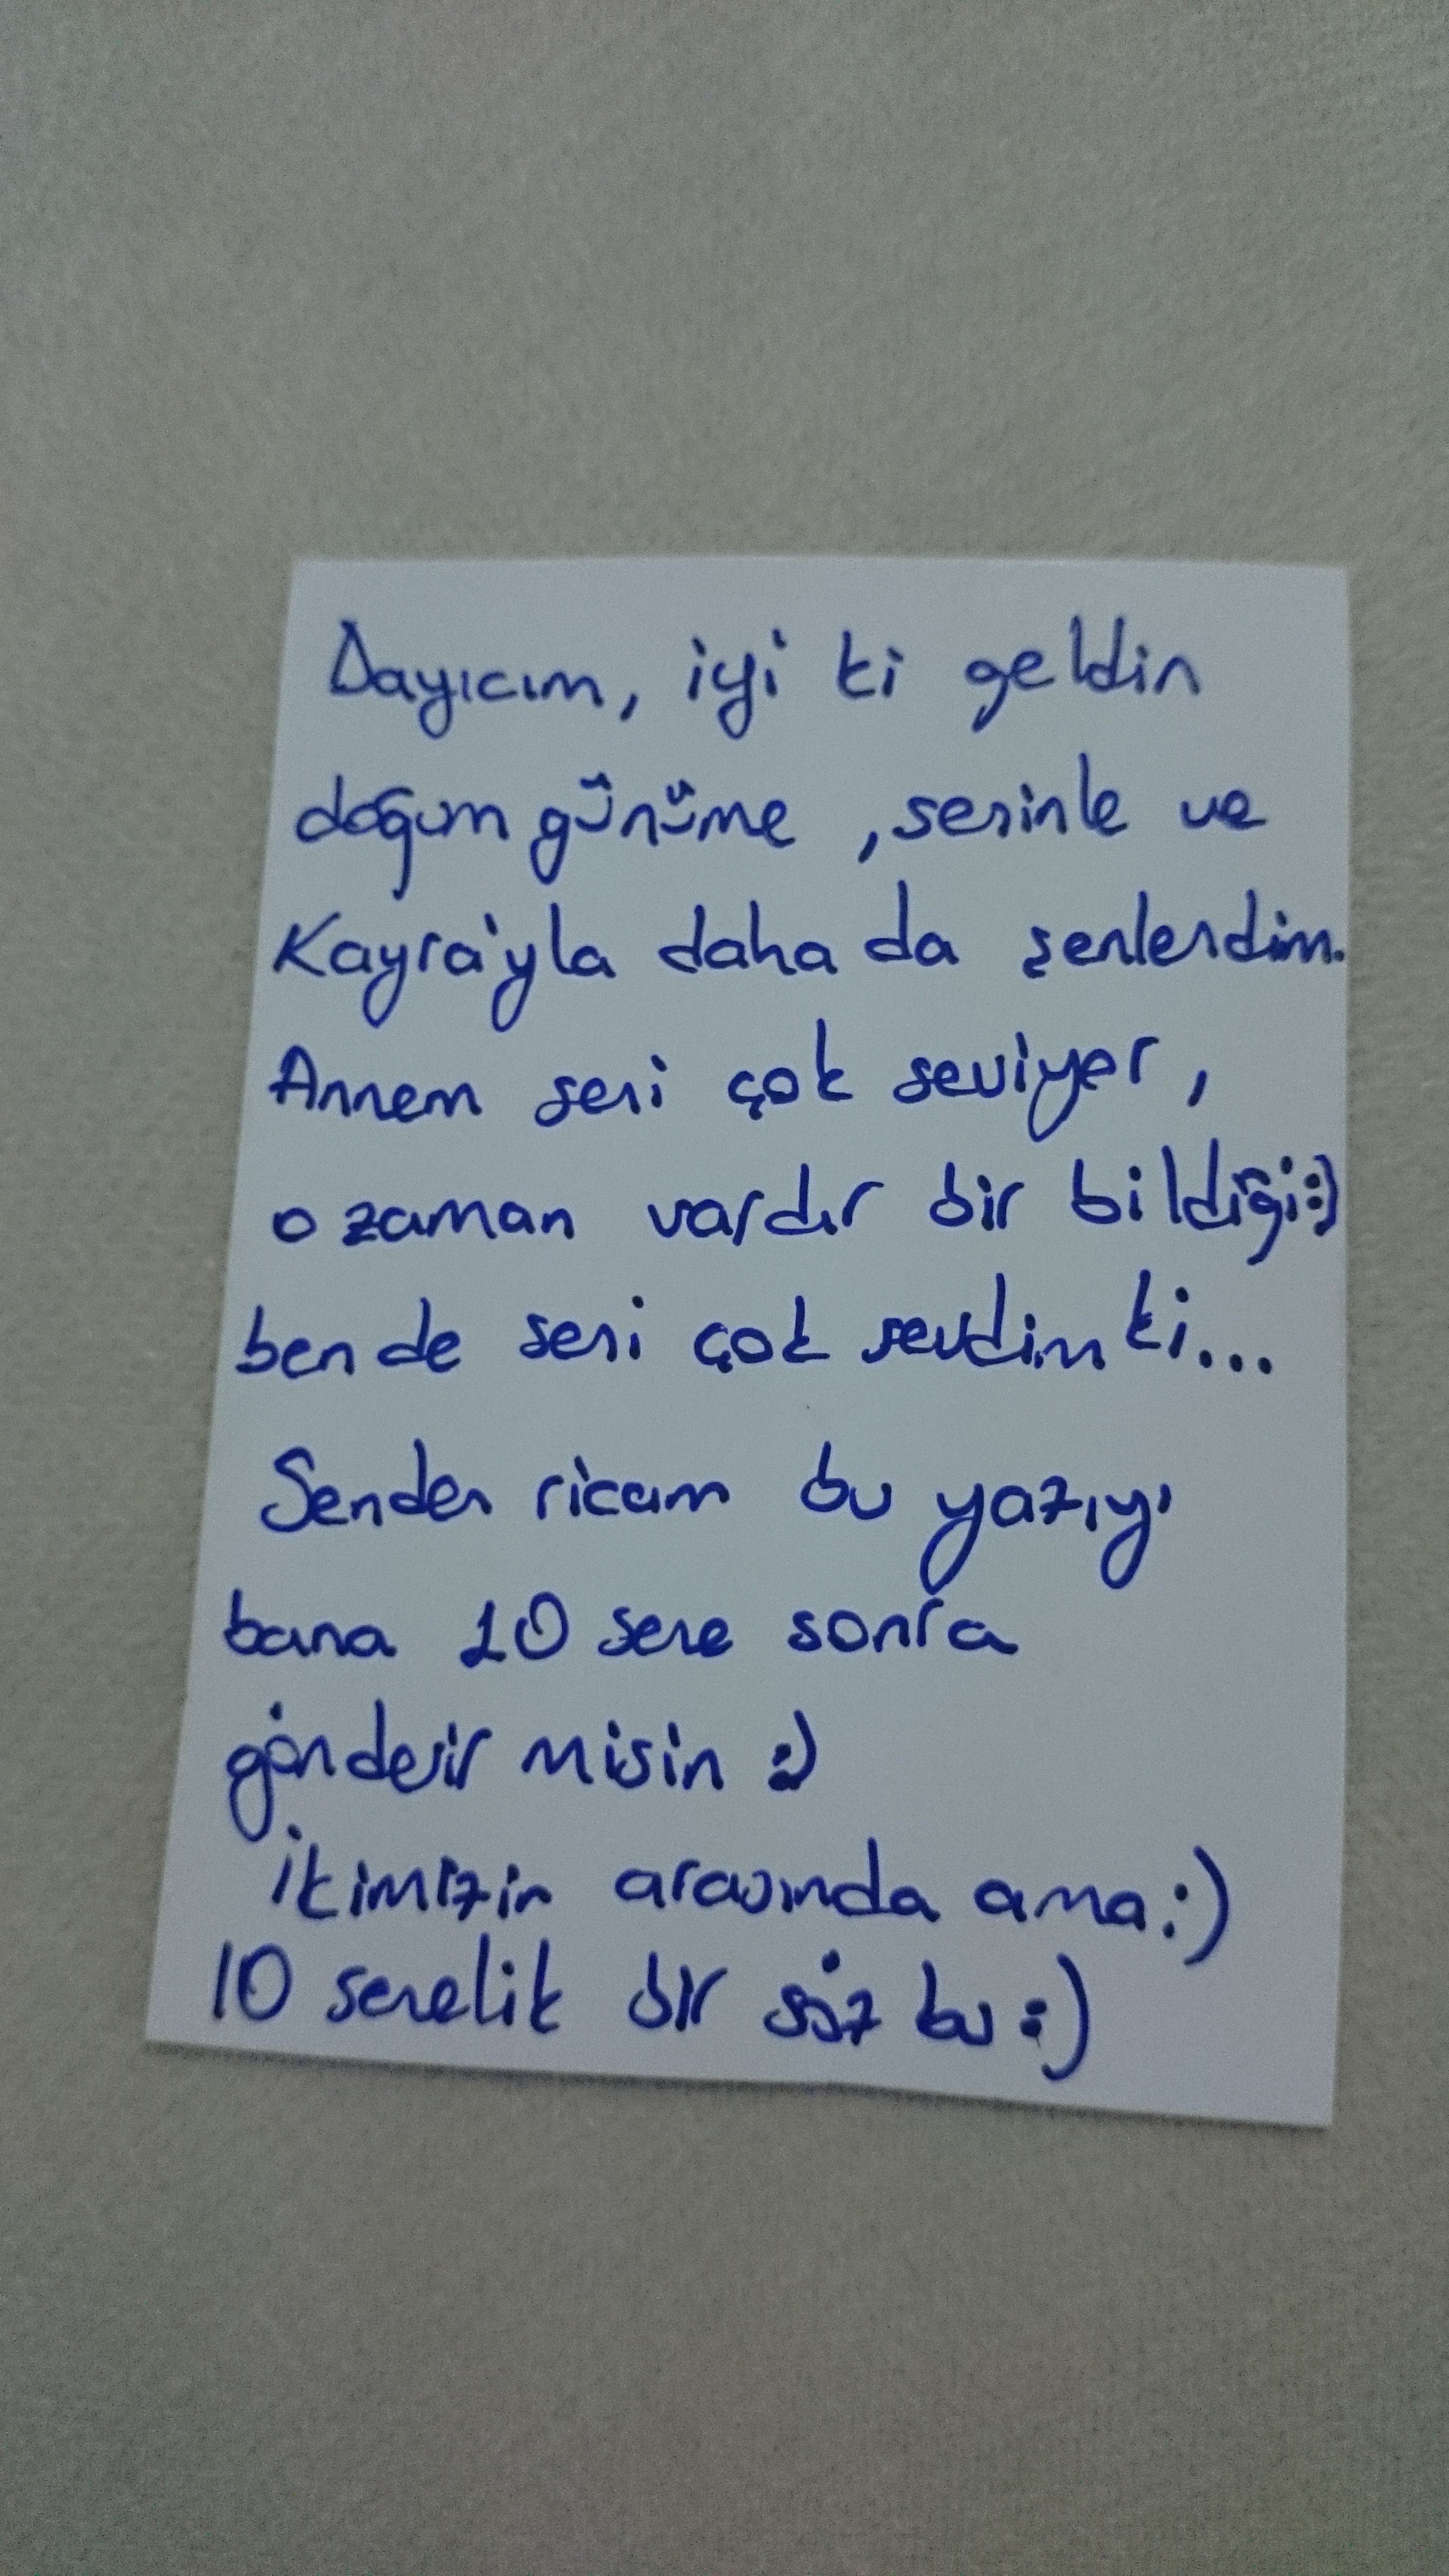 Dayıcım, iyi ki geldin
doğum günüme, seninle ve
Kayra'yla daha da şenlendim.
Annem seni çok seviyor,
o zaman vardır bir bildiği:)
bende seni çok sevdim ki...
Senden ricam bu yazıyı
bana 10 sene sonra
gönderir misin :)
ikimizin arasında ama :)
10 senelik bir söz bu :)